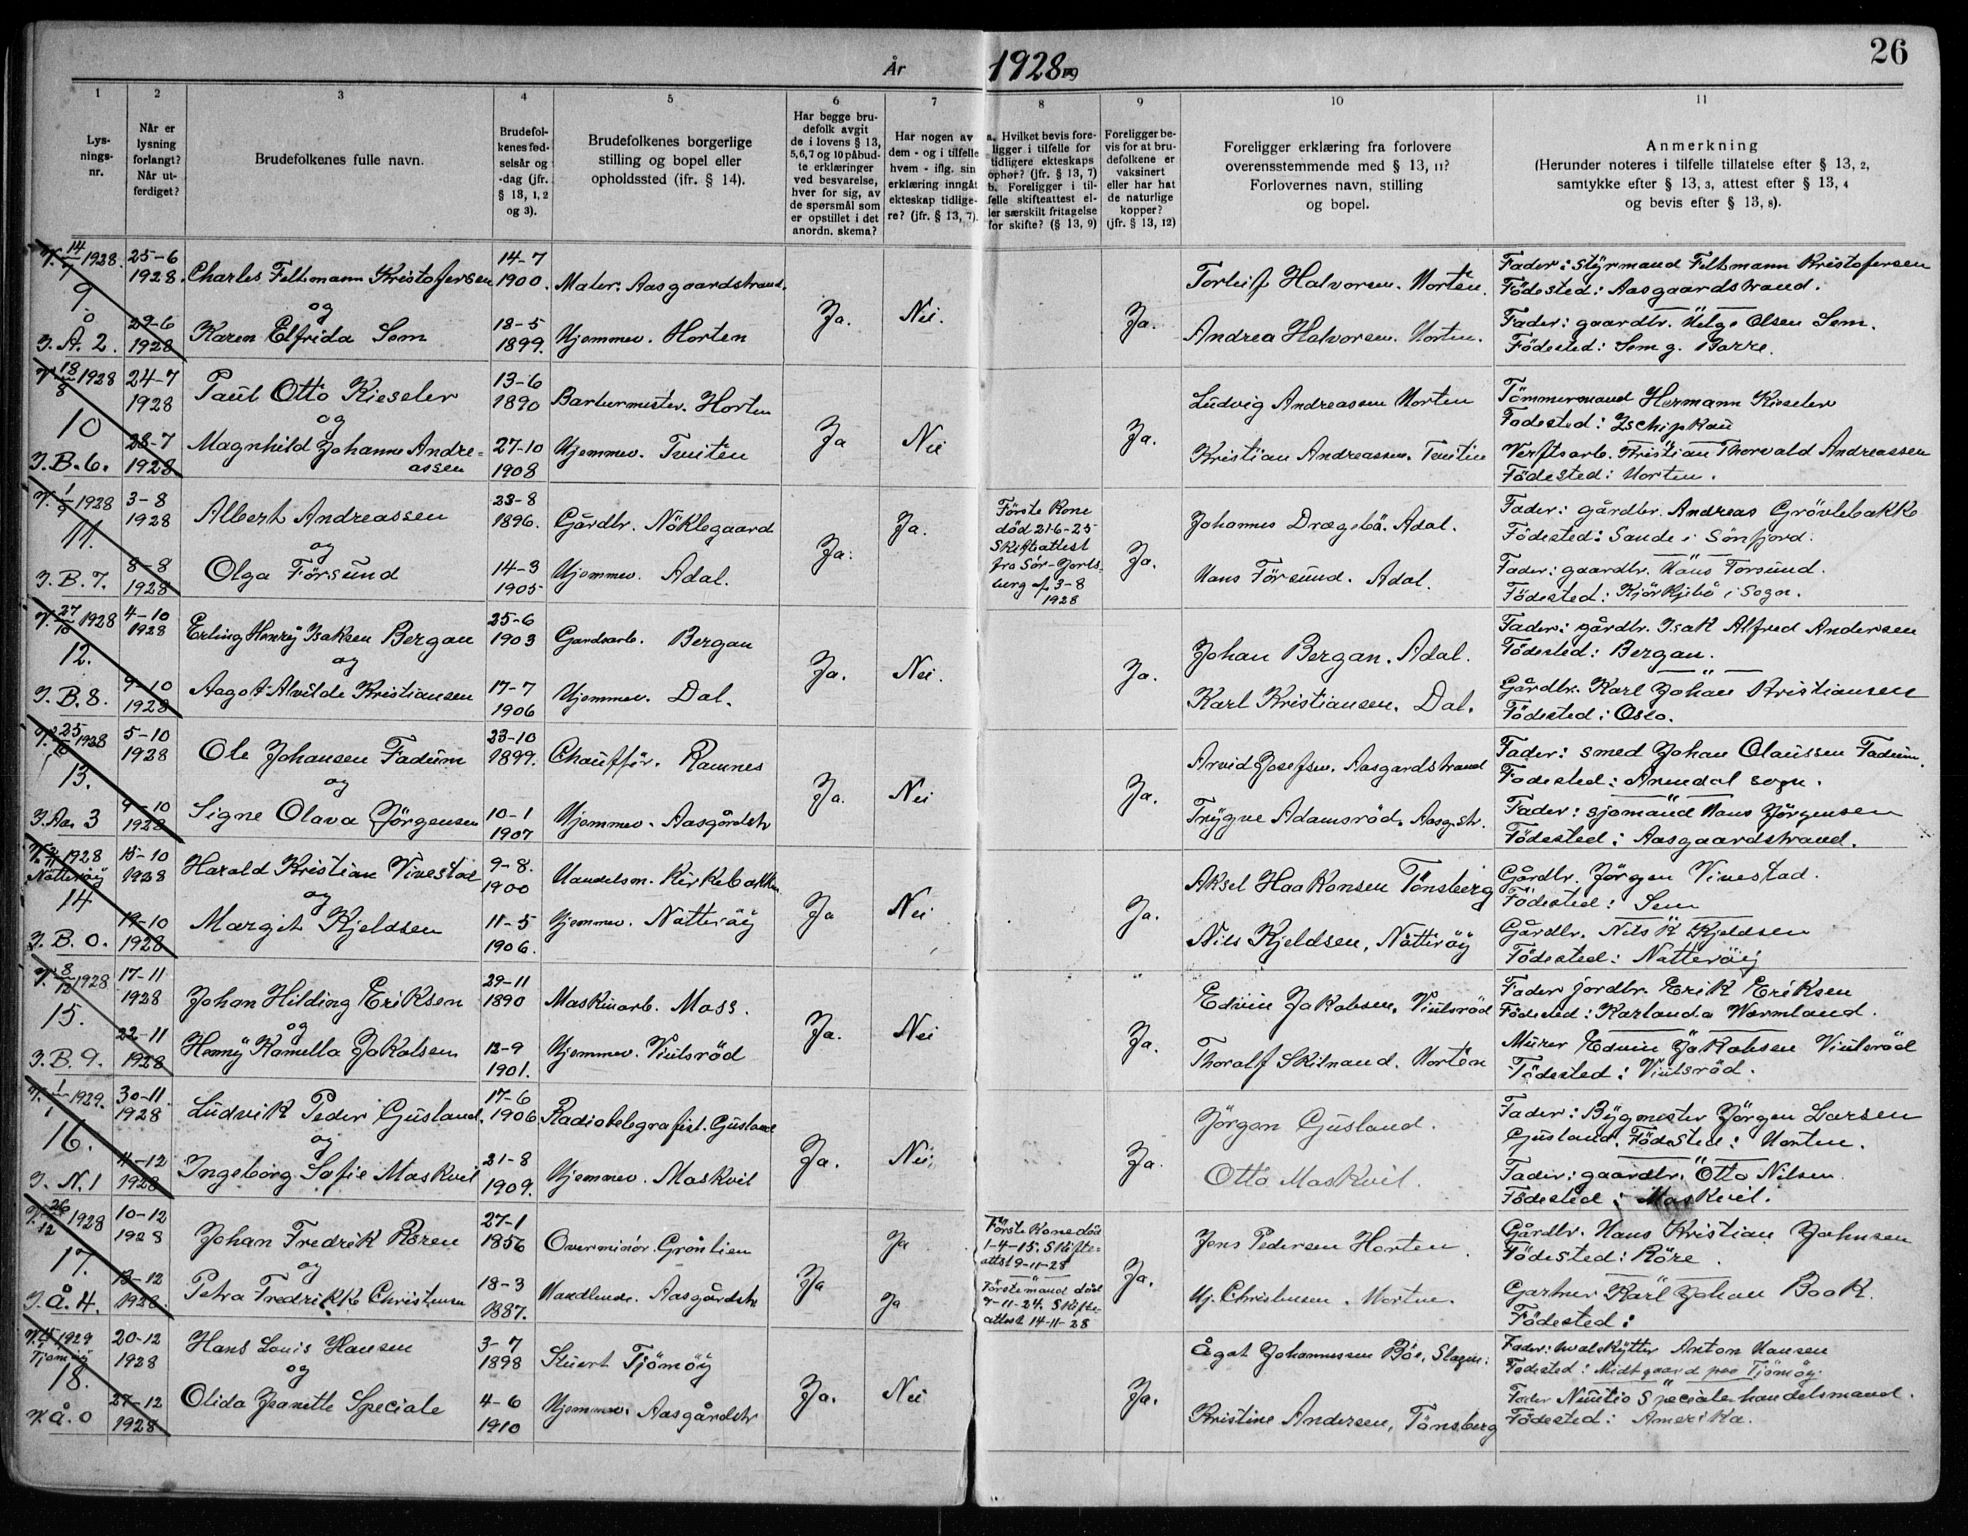 År 1928
26
1
2
3
4
5
6
7
8
9
10
11
Lys-
nings-
nr.
Når er
lysning
forlangt?
Når ut-
ferdiget?
Brudefolkenes fulle navn.
Brudefol-
kenes fød-
selsår og
-dag (jfr.
§ 13, 1, 2
og 3).
Brudefolkenes borgerlige
stilling og bopel eller
opholdssted (ifr. § 14).
Har begge bru-
defolk avgit
de i lovens § 13,
5, 6, 7 og 10 påbud-
te erklæringer
ved besvarelse,
hver for sig, av
de spørsmål som
er opstillet i det
anordn. skema?
Har nogen av
dem - og i tilfelle
hvem - iflg. sin
erklæring inngåt
ekteskap tidlige-
re? (jfr. § 13, 7).
a. Hvilket bevis fore-
ligger i tilfelle for
tidligere ekteskaps
ophør? (jfr. § 13, 7)
b. Foreligger i til-
felle skifteattest el-
ler særskilt fritagelse
for skifte? (§ 13, 9)
Foreligger be-
vis for at bru-
defolkene er
vaksinert
eller har hat
de naturlige
kopper?
(jfr. § 13, 12)
Foreligger erklæring fra forlovere
overensstemmende med § 13, 11?
Forlovernes navn, stilling
og bopel.
Anmerkning
(Herunder noteres i tilfelle tillatelse efter § 13, 2,
samtykke efter § 13, 3, attest efter § 13, 4
og bevis efter § 13, 8).
V. 14/7 1928.
9.
J. Å. 2.
25-6
1928.
29-6
1928
Charles Feltmann Kristofersen
og
Karen Elfrida Sem
14-7
1900.
18-5
1899.
Maler. Aasgaardstrand.
Hjemmev. Horten
Ja.
Nei.
Ja.
Torleif Halvorsen. Horten.
Andrea Halvorsen. Horten.
Fader: Styrmand Feltmann Kristofersen
Födested: Aasgaardstrand.
Fader: gaardbr. Helge Olsen Sem.
Födested: Sem g. Borre.
V. 18/8 1928
10
J. B. 6.
24-7
1928
28-7
1928
Paul Otto Kieseler
og
Magnhild Johanne Andre-
assen
13-6
1890
27-10
1908
Barbermester. Horten
Hjemmev. Tveiten
Ja
Nei
Ja.
Ludvig Andreassen Horten
Kristian Andreassen. Tveiten
Tömmermand Hermann Kieseler
Födested: Zschipkau
Verftsarb. Kristian Thorvald Andreassen
Födested: Horten.
V. 1/9 1928
11.
J. B. 7.
3-8
1928
8-8
1928
Albert Andreassen
og
Olga Försund
23-8
1896.
14-3
1905
Gårdbr. Nöklegaard
Hjemmev. Adal.
Ja.
Ja.
Förste Kone
död 21-6-25
Skifteattest
fra Sör-Jarls-
berg af 3-8
1928
Ja.
Johannes Dragebö. Adal.
Hans Försund. Adal.
Fader: gårdbr. Andreas Grövlebakke
Födested: Sande i Sönfjord.
Fader: gaardbr. Hans Forsund.
Födested: Kjörkjebö i Sogn.
V. 27/10 1928
12.
J. B. 8.
4-10
1928
9-10
1928
Erling Henry Isaksen Bergan
og
Aagot Alvilde Kristiansen
25-6
1903
17-7
1906
Gardsarb. Bergan
Hjemmev. Dal.
Ja.
Nei.
Ja.
Johan Bergan. Adal.
Karl Kristiansen. Dal.
Fader: gårdbr. Isak Alfred Andersen
Födested: Bergan.
Gårdbr. Karl Johan Kristiansen
Födested: Oslo.
V. 25/10 1928
13.
J. Aa. 3
5-10
1928
9-10
1928
Ole Johansen Fadum
og
Signe Olava Jörgensen
23-10
1899.
10-1
1907
Chauffør. Ramnes
Hjemmev. Aasgårdstr
Ja.
Nei
Ja.
Arvid Josefsen. Aasgardstrand
Trygve Adamsröd. Aasg.str.
Fader: smed Johan Olaussen Fadum.
Födested: Arendal sogn.
Fader: sjomand Hans Jörgensen
Födested: Aasgaardstrand.
1928
Nötteröy
14
J. B. 0.
15-10
1928
19-10
1928
Harald Kristian Vivestad
og
Margit Kjeldsen
9-8.
1900
11-5
1906.
Handelsm. Kirkebakken
Hjemmev. Nötteröy
Ja
Nei
Ja.
Aksel Haakonsen Tönsberg
Nils Kjeldsen, Nötteröy
Gårdbr. Jörgen Vivestad.
Födested: Sem
Gårdbr. Nils K Kjeldsen
Födested: Nötteröy
V. 8/12 1928
15.
J. B. 9.
17-11
1928
22-11
1928
Johan Hilding Eriksen
og
Henny Kamella Jakobsen
29-11
1890
12-9
1901.
Maskinarb. Moss.
Hjemmev. Viulsröd
Ja.
Nei
Ja.
Edvin Jakobsen, Viulsröd
Thoralf Skilnand. Horten
Fader jordbr. Erik Eriksen
Födested: Karlanda Wermland.
Murer Edvin Jakobsen Viulsröd
Födested: Viulsröd.
V. 1/1 1929.
16.
J. N. 1
30-11
1928
4-12
1928
Ludvik Peder Gusland.
og
Ingeborg Sofie Maskvil
17-6
1906
21-8
1909.
Radiotelegrafist. Gusland
Hjemmev. Maskvil
Ja.
Nei.
Ja.
Jörgen Gusland.
Otto Maskvil.
Fader: Bygmester Jörgen Larsen
Gusland. Födested: Horten.
Fader: gaardbr. Otto Nilsen
Födested: Maskvil.
V. 26/12 1928
17.
J. Å. 4.
10-12
1928
13-12
1928.
Johan Fredrik Rören
og
Petra Fredrikke Christensen
27-1
1856
18-3
1887.
Overminör. Grönlien
Handlende. Aasgårdstr
Ja
Ja
Ja
Förste Kone död
1-4-15. Skifte-
attst 9-11-28
Förstemand död
9-11-24. Skifte-
attest 14-11-28
Ja.
Jens Pedersen Horten.
Hj. Christensen. Horten.
Gårdbr. Hans Kristian Johnsen
Födested: Röre.
Gartner Karl Johan Book.
Födested:
1929
Tjömöy
18.
V. Å. 0
20-12
1928
27-12
1928
Hans Louis Hansen
og
Olida Jeanette Speciale
3-7
1898
4-6
1910
Stuert Tjömöy
Hjemmev. Aasgårdstr
Ja.
Nei
Ja.
Ågot Johannessen Böe, Slagen.
Kristine Andersen, Tönsberg
Fader: hvalskytter Anton Hansen
Födested: Midtgaard paa Tjömöy
Fader Nuntio Speciale handelsmand.
Födested: Amerika.